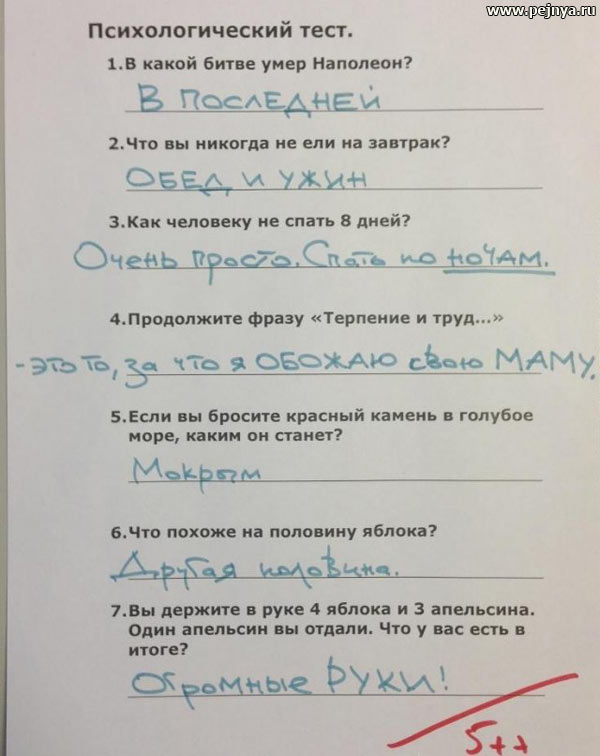 www.pejnya.ru
Психологический тест.
1.В какой битве умер Наполеон?
В ПОСЛЕДНЕЙ
2.Что вы никогда не ели на завтрак?
ОБЕД и УЖИН
3.Как человеку не спать 8 дней?
Очень просто. Спать по НОЧАМ.
4.Продолжите фразу «Терпение и труд...»
-ЭТО ТО, за что я ОБОЖАЮ свою МАМУ.
5.Если вы бросите красный камень в голубое
море, каким он станет?
Мокрым
6.Что похоже на половину яблока?
Другая половина.
7.Вы держите в руке 4 яблока и 3 апельсина.
Один апельсин вы отдали. Что у вас есть в
итоге?
Огромные РУКИ!
5++